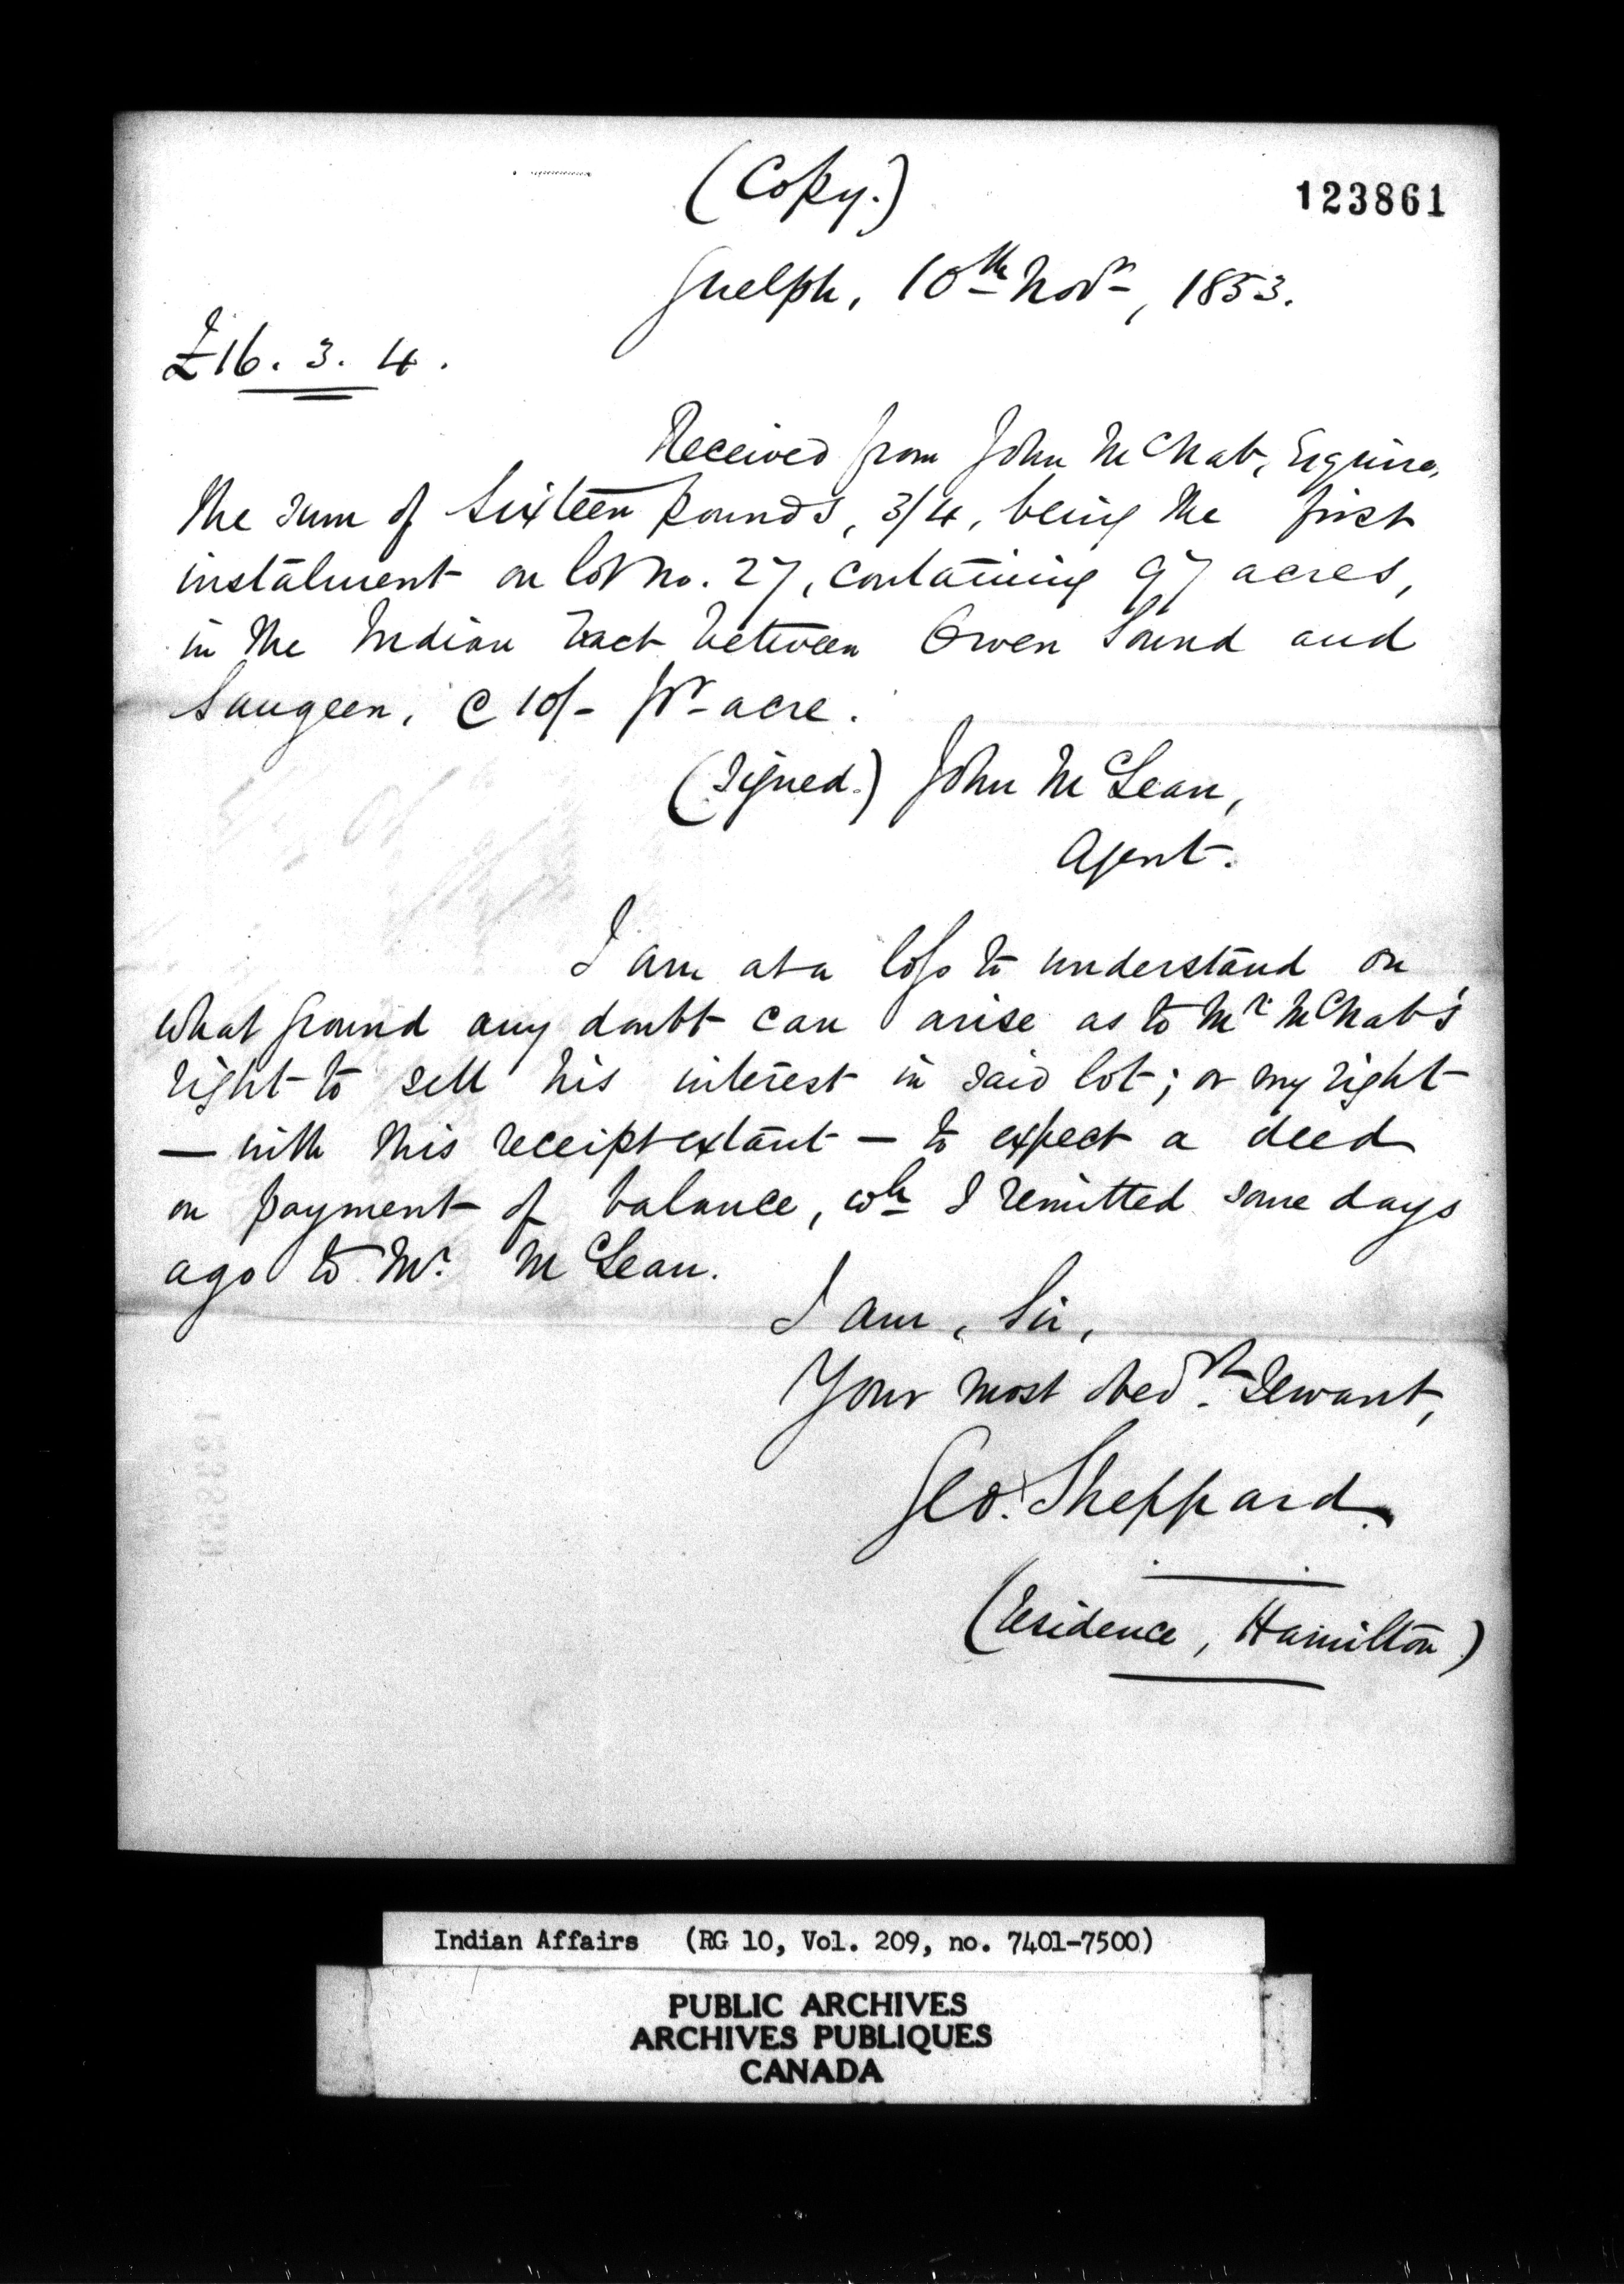 (Copy.)
123861
Guelph, 10th Novr, 1853.
£16. 3. 4.
Received from John McNab, Esquire,
the sum of Sixteen pounds, 3/4, being the first
instalment on lot no. 27, containing 97 acres,
in the Indian tract between Owen Sound and
Saugeen, @ 10/- pr acre.
(Signed.) John McLean,
Agent.
I am at a loss to understand on
what ground any doubt can arise as to Mr McNab's
right to sell his interest in said lot; or my right
— with this receipt extant — to expect a deed
on payment of balance, wh I remitted some days
ago to Mr. McLean.
I am, Sir,
Your most obedt. Servant,
Geo. Sheppard.
(Residence, Hamilton)
Indian Affairs (RG 10, Vol. 209, no. 7401-7500)
PUBLIC ARCHIVES
ARCHIVES PUBLIQUES
CANADA